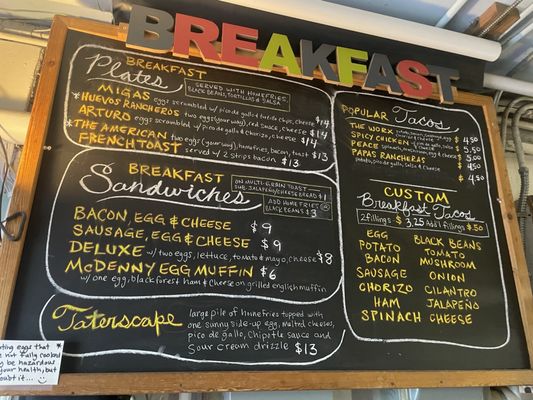 BREAKFAST
BREAKFAST
Plates
SERVED WITH HOMEFRIES,
BLACK BEANS, TORTILLAS & SALSA
MIGAS eggs scrambled w/ pico de gallo & tortilla chips, cheese $14
*HUEVOS RANCHEROS two eggs (your way), red sauce, cheese $14
ARTURO eggs scrambled w/ pico de gallo & chorizo, cheese $14
*THE AMERICAN two eggs (your way), homefries, bacon, toast $13
FRENCH TOAST served w/ 2 strips bacon $13
BREAKFAST
Sandwiches
ON MULTI-GRAIN TOAST
SUB JALAPEÑO CHEESE BREAD $1
ADD HOMEFRIES OR
BLACK BEANS $3
BACON, EGG & CHEESE $9
SAUSAGE, EGG & CHEESE $9
DELUXE w/ two eggs, lettuce, tomato & mayo, cheese $8
McDENNY EGG MUFFIN $6
w/ one egg, black forest ham & cheese on grilled english muffin
Taterscape
large pile of homefries topped with
one sunny side-up egg, melted cheese,
pico de gallo, Chipotle sauce and
Sour cream drizzle $13
POPULAR Tacos
THE WORX $4.50
SPICY CHICKEN $5.50
PEACE spinach, mushroom, egg & cheese $5.00
PAPAS RANCHERAS $4.50
potato, pico de gallo, salsa & cheese
$4.50
CUSTOM
Breakfast Tacos
2 fillings $3.25 Add'l fillings $.50
EGG
POTATO
BACON
SAUSAGE
CHORIZO
HAM
SPINACH
BLACK BEANS
TOMATO
MUSHROOM
ONION
CILANTRO
JALAPEÑO
CHEESE
ting eggs that
e not fully cooked
y be hazardous
your health, but
oubt it...